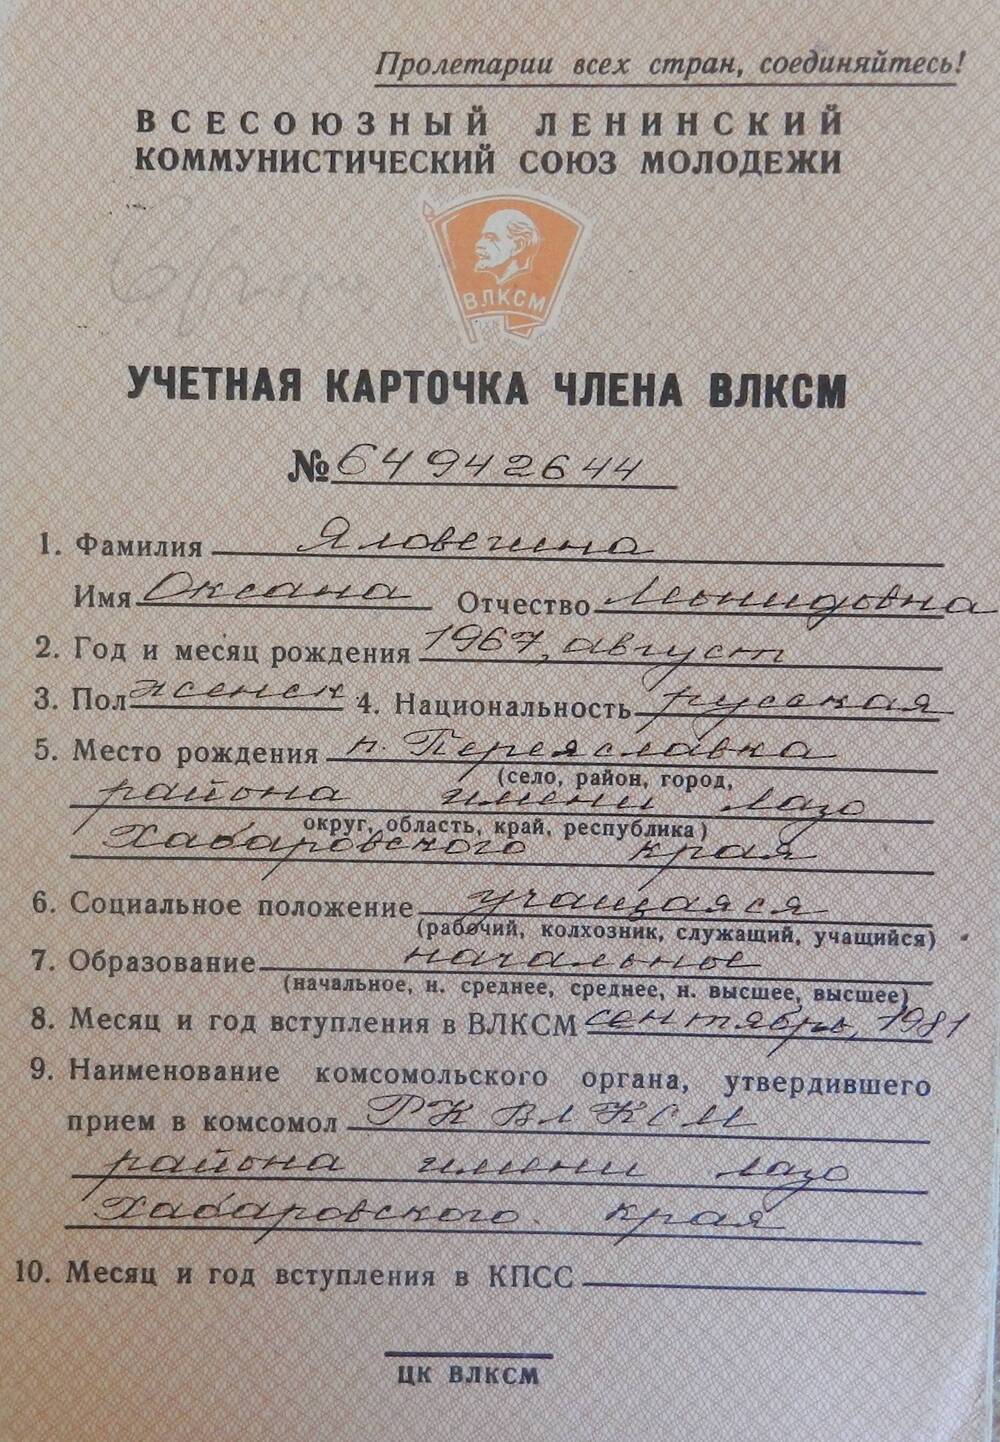 Пролетарии всех стран, соединяйтесь!
ВСЕСОЮЗНЫЙ ЛЕНИНСКИЙ
КОММУНИСТИЧЕСКИЙ СОЮЗ МОЛОДЕЖИ
ВЛКСМ
УЧЕТНАЯ КАРТОЧКА ЧЛЕНА ВЛКСМ
№ 64942644
1. Фамилия Яловегина
Имя Оксана Отчество Леонидовна
2. Год и месяц рождения 1967, август
3. Пол женск. 4. Национальность русская
5. Место рождения п. Переяславка
(село, район, город,
района имени Лазо
округ, область, край, республика)
Хабаровского края
6. Социальное положение учащаяся
(рабочий, колхозник, служащий, учащийся)
7. Образование начальное
(начальное, н. среднее, среднее, н. высшее, высшее)
8. Месяц и год вступления в ВЛКСМ сентябрь, 1981
9. Наименование комсомольского органа, утвердившего
прием в комсомол РК ВЛКСМ
района имени Лазо
Хабаровского края
10. Месяц и год вступления в КПСС
ЦК ВЛКСМ